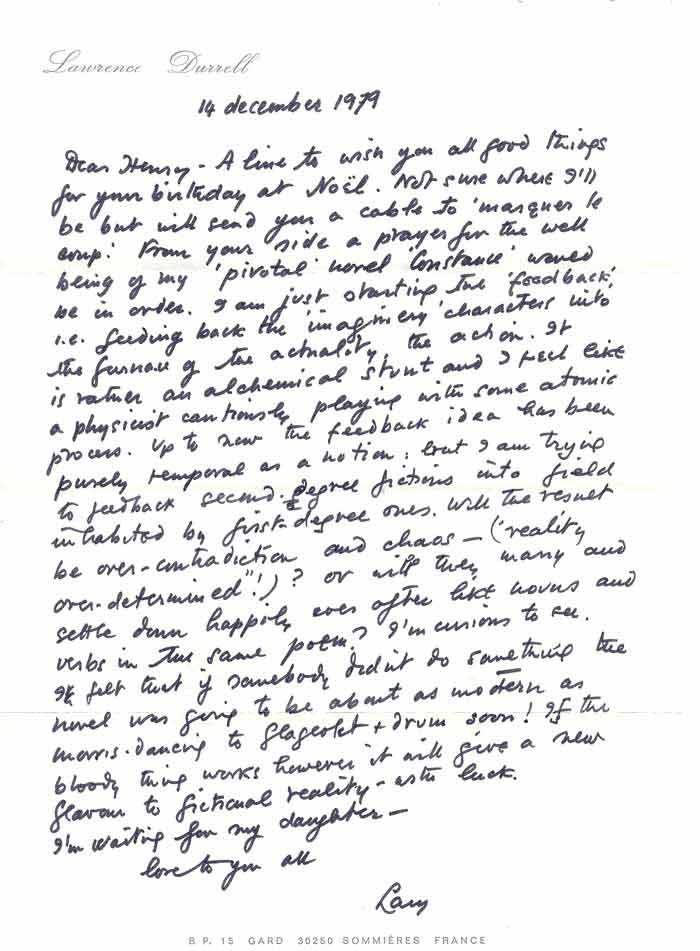 Lawrence Durrell
14 december 1979
Dear Henry - A line to wish you all good things
for your birthday at Noël. Not sure where I'll
be but will send you a cable to 'marquer le
coup'. From your side a prayer for the well
being of my 'pivotal' novel 'Constance' would
be in order. I am just starting the 'feedback',
i.e. feeding back the 'imaginery' characters into
the furnace of the actuality, the action. It
is rather an alchemical stunt and I feel like
a physicist cautiously playing with some atomic
process. Up to now the feedback idea has been
purely temporal as a notion: but I am trying
to feedback second-degree fictions into field
inhabited by first-degree ones. Will the result
be over-contradiction and chaos — ('reality
over-determined"!)? or will they marry and
settle down happily ever after like nouns and
verbs in the same poem? I'm curious to see.
I felt that if somebody didn't do something the
novel was going to be about as modern as
morris-dancing to flageolet + drum soon! If the
bloody thing works however it will give a new
flavour to fictional reality - with luck.
I'm waiting for my daughter —
love to you all
Larry
B.P. 15 GARD 30250 SOMMIÈRES FRANCE